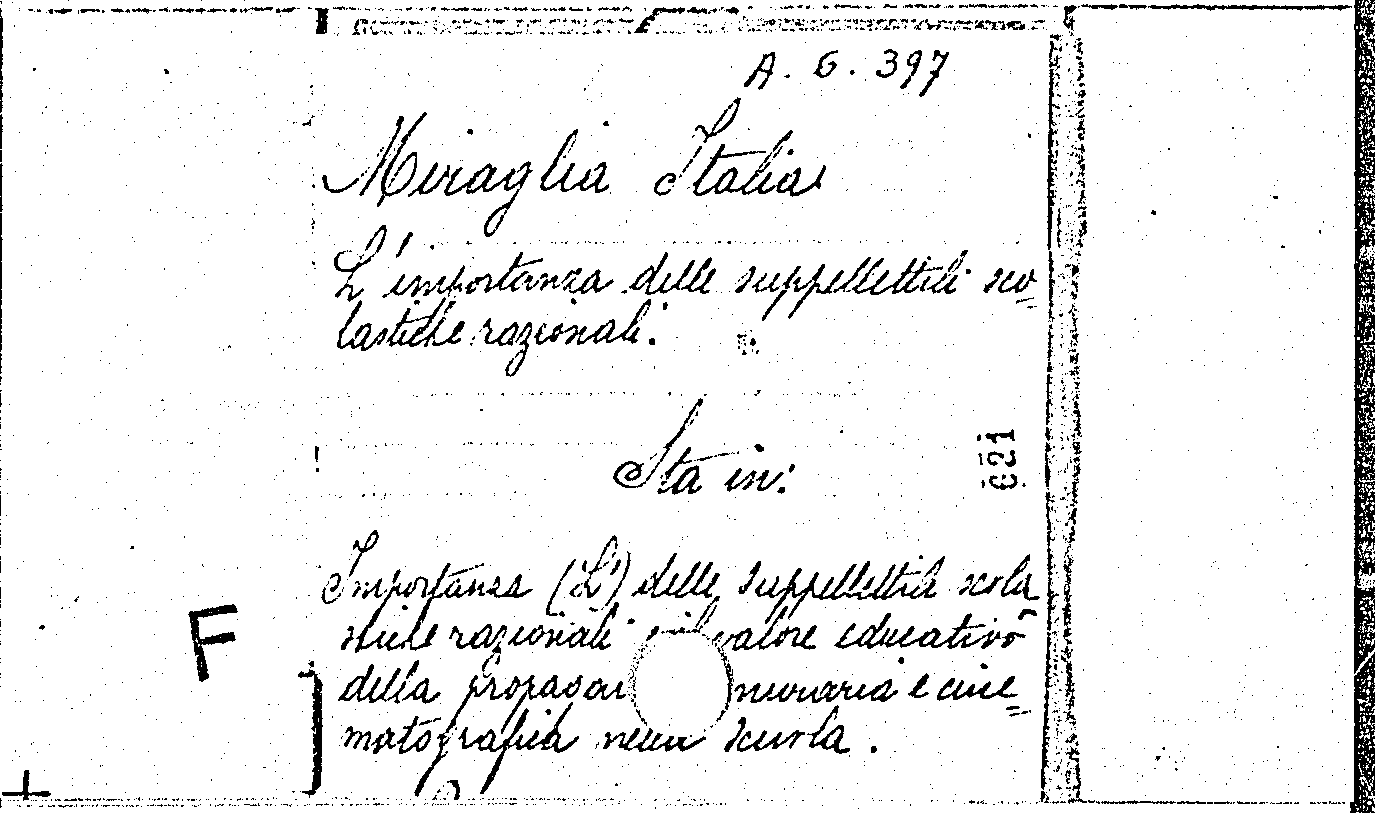 A. 6. 397
Miraglia Italia
L'importanza delle suppellettili sco=
lastiche razionali.
Sta in:
021
Importanza (L') delle suppellettili scola
stiche razionali valore educativo
della e cine=
matografica scuola.
F